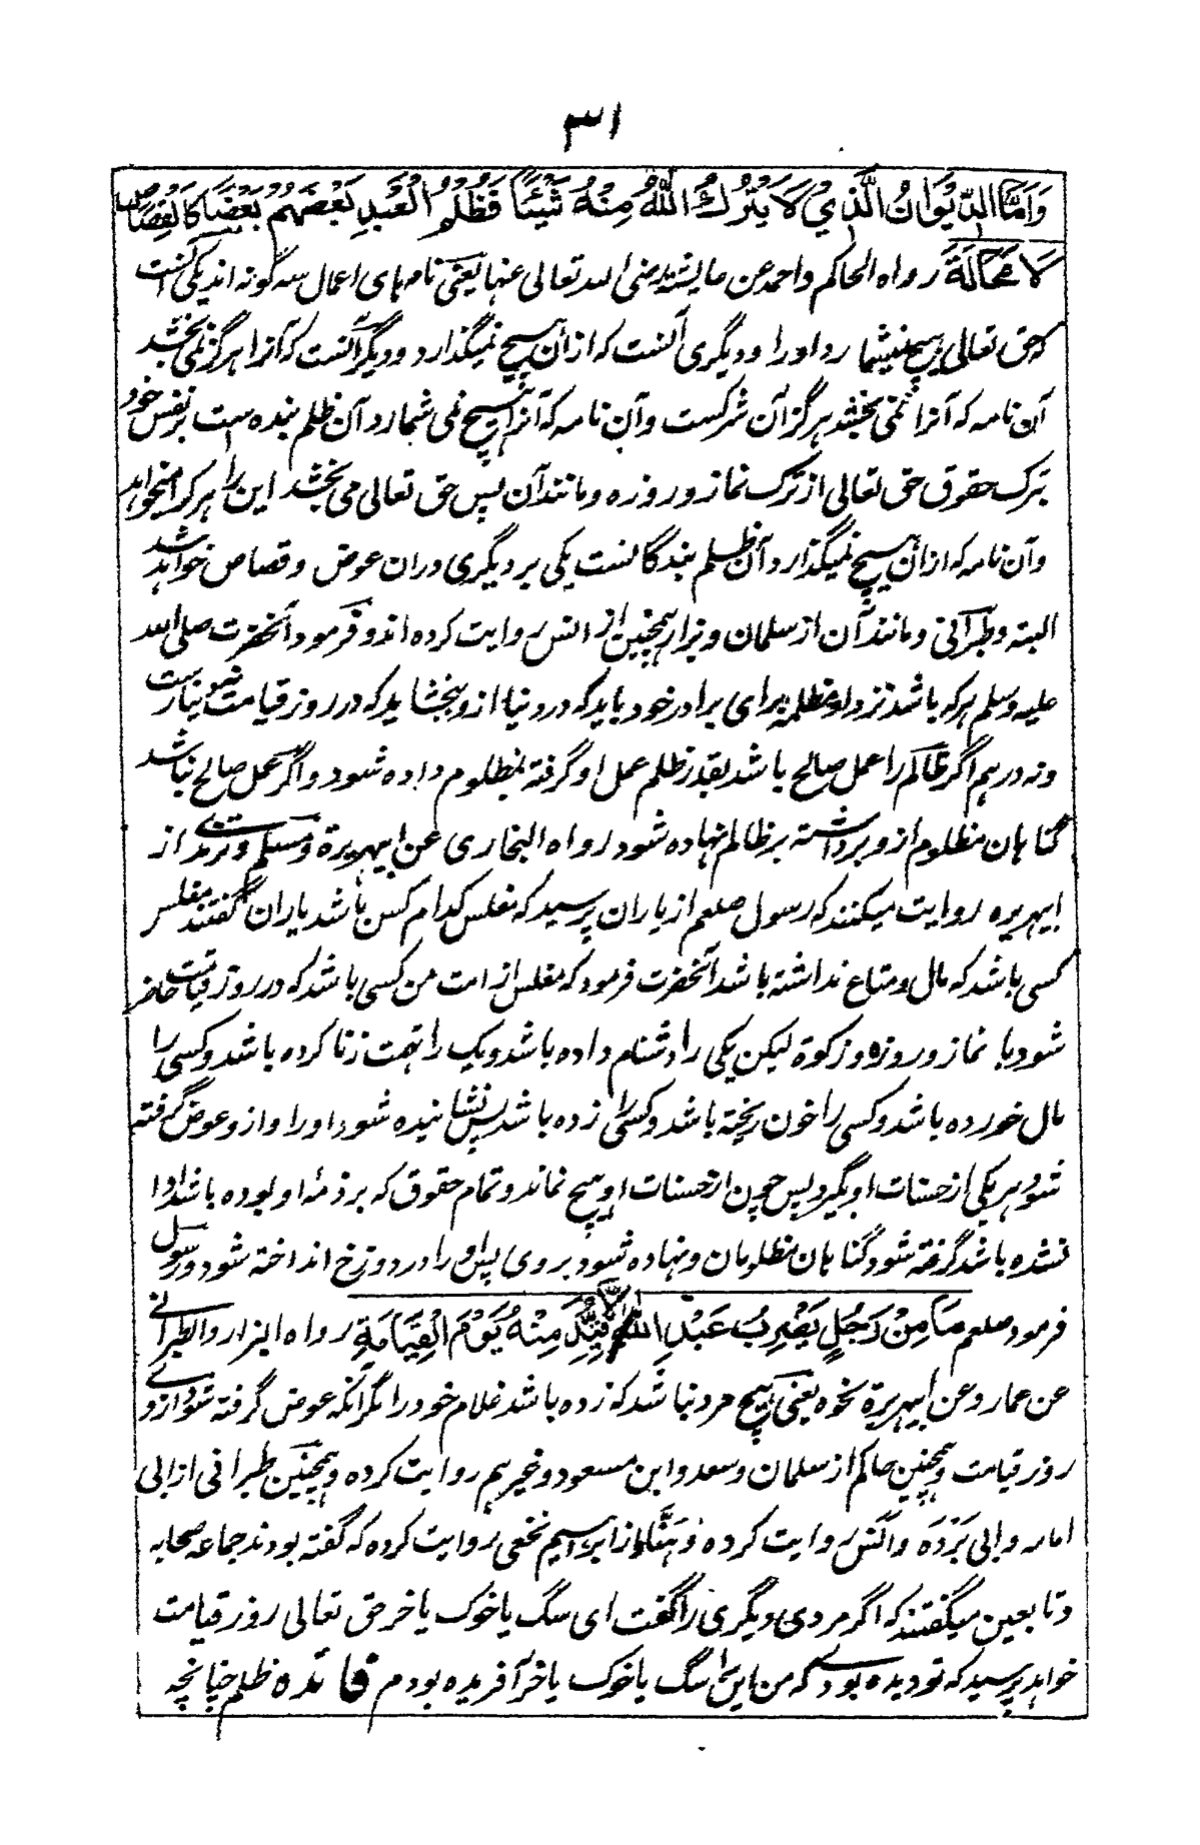 ۳۱
وَاَمَّا الدِّيْوَانُ الَّذِيْ لَا يَتْرُكُ اللّٰهُ مِنْهُ شَيْئًا فَظُلْمُ الْعَبْدِ بَعْضَهُمْ بَعْضًا كَالْقِصَاصِ
لَا مَحَالَةَ رواه الحاکم واحمد عن عایشه رضی الله تعالی عنها یعنی نامهای اعمال سه گونه اند یکی آنست
که حق تعالی هیچ نمیشمارد اورا و دیگری آنست که از آن هیچ نمیگذارد و دیگر آنست که آنرا هرگز نمی بخشد
آن نامه که آنرا نمی بخشد هرگز آن شرکست وآن نامه که آنرا هیچ نمی شمارد آن ظلم بنده است بر نفس خود
بترک حقوق حق تعالی از ترک نماز و روزه و مانند آن پس حق تعالی می بخشد این را هر کرا میخواهد
وآن نامه که از آن هیچ نمیگذارد آن ظلم بندگانست یکی بر دیگری دران عوض و قصاص خواهد شد
البته و طبرانی و مانند آن از سلمان و بزار همچنین از انس روایت کرده اند و فرمود آنحضرت صلی الله
علیه وسلم هر که باشد نزد او مظلمه برای برادر خود باید که در دنیا ازو بخشاید که در روز قیامت نیست دینار
ونه درهم اگر ظالم را عمل صالح باشد بقدر ظلم عمل او گرفته بمظلوم داده شود و اگر عمل صالح نباشد
گناهان مظلوم ازو برداشته بر ظالم نهاده شود رواه البخاری عن ابیهریرة و مسلم و ترمذی از
ابیهریره روایت میکنند که رسول صلعم از یاران پرسید که مفلس کدام کس باشد یاران گفتند مفلس
کسی باشد که مال و متاع نداشته باشد آنحضرت فرمود که مفلس از امت من کسی باشد که در روز قیامت حاضر
شود با نماز و روزه و زکوة لیکن یکی را دشنام داده باشد ویک را تهمت زنا کرده باشد و کسی را
مال خورده باشد و کسی را خون ریخته باشد و کسی را زده باشد پس نشانیده شود او را و ازو عوض گرفته
شود هر یکی از حسنات او بگیرد پس چون از حسنات او هیچ نماند و تمام حقوق که بر ذمهٔ او بوده باشد ادا
نشده باشد گرفته شود گناهان مظلومان و نهاده شود بر وی پس او را در دوزخ انداخته شود و رسول
فرمود صلعم مَا مِنْ رَجُلٍ يَضْرِبُ عَبْدًا اِلَّا اُقِيْدَ مِنْهُ يَوْمَ الْقِيَامَةِ رواه البزار والطبرانی
عن عمار وعن ابیهریرة نحوه یعنی هیچ مرد نباشد که زده باشد غلام خود را مگر آنکه عوض گرفته شود ازو در
روز قیامت و همچنین حاکم از سلمان و سعد و ابن مسعود و غیرهم روایت کرده و همچنین طبرانی از ابی
امامه و ابی بَرْدَه و انس روایت کرده و هَنَّاد از ابراهیم نخعی روایت کرده که گفته بودند جماعه صحابه
و تابعین میگفتند که اگر مردی دیگری را گفت ای سگ یا خوک یا خر حق تعالی روز قیامت
خواهد پرسید که تو دیده بودی که من این را سگ یا خوک یا خر آفریده بودم فائده ظلم چنانچه